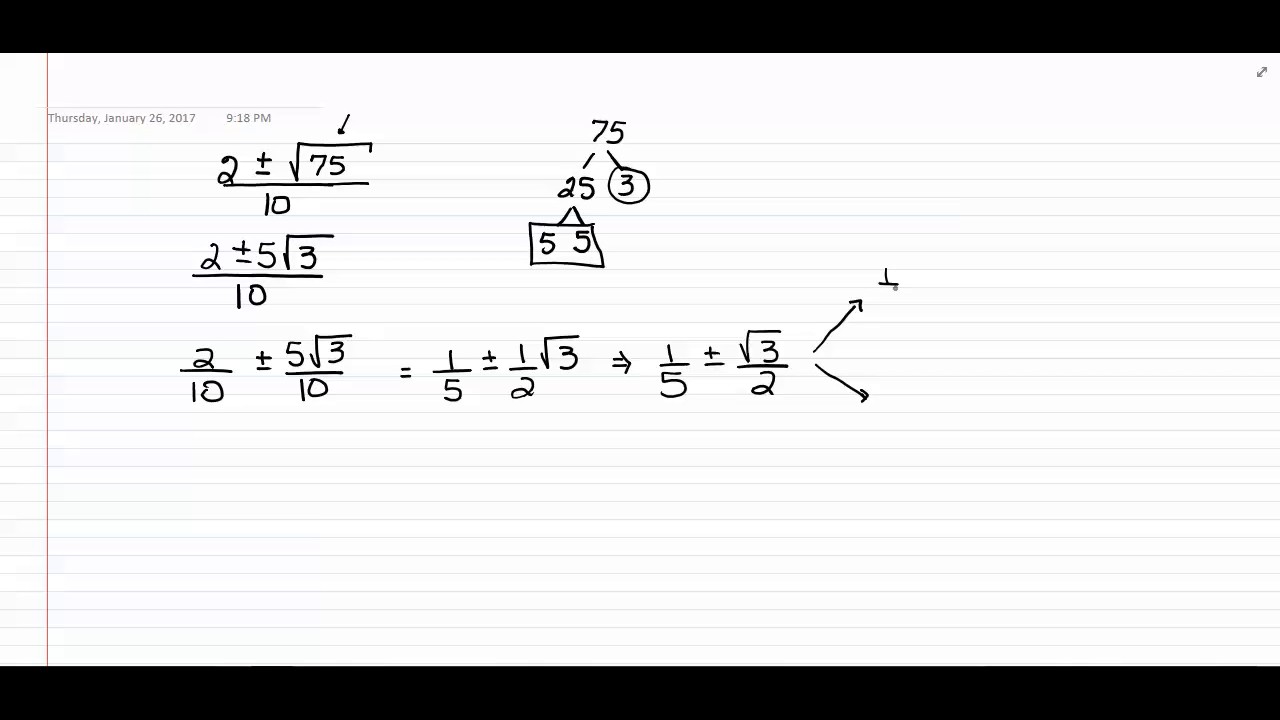 Thursday, January 26, 2017 9:18 PM
2 ± √75 / 10
75
25 3
5 5
2 ± 5√3 / 10
2/10 ± 5√3/10 = 1/5 ± 1/2 √3 ⇒ 1/5 ± √3/2
1